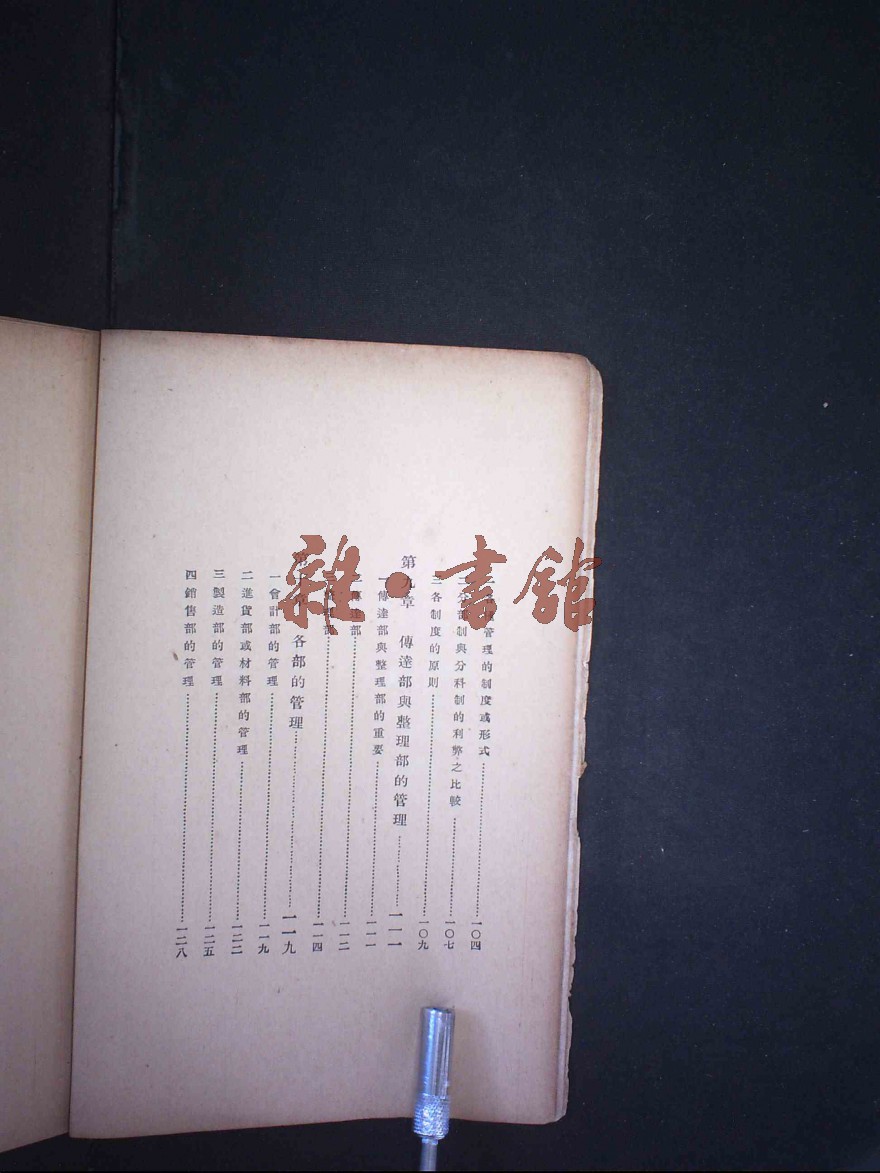 管理的制度或形式…………一〇四
制與分科制的利弊之比較…………一〇七
三 各制度的原則…………一〇九
第九章 傳達部與整理部的管理…………一一一
一 傳達部與整理部的重要…………一一一
傳達部…………一一二
部…………一一四
各部的管理…………一一九
一 會計部的管理…………一一九
二 進貨部或材料部的管理…………一二二
三 製造部的管理…………一二五
四 銷售部的管理…………一二八
雜·書館